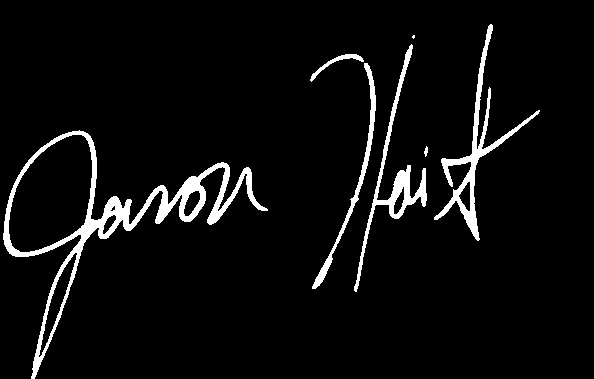 Jason Haist